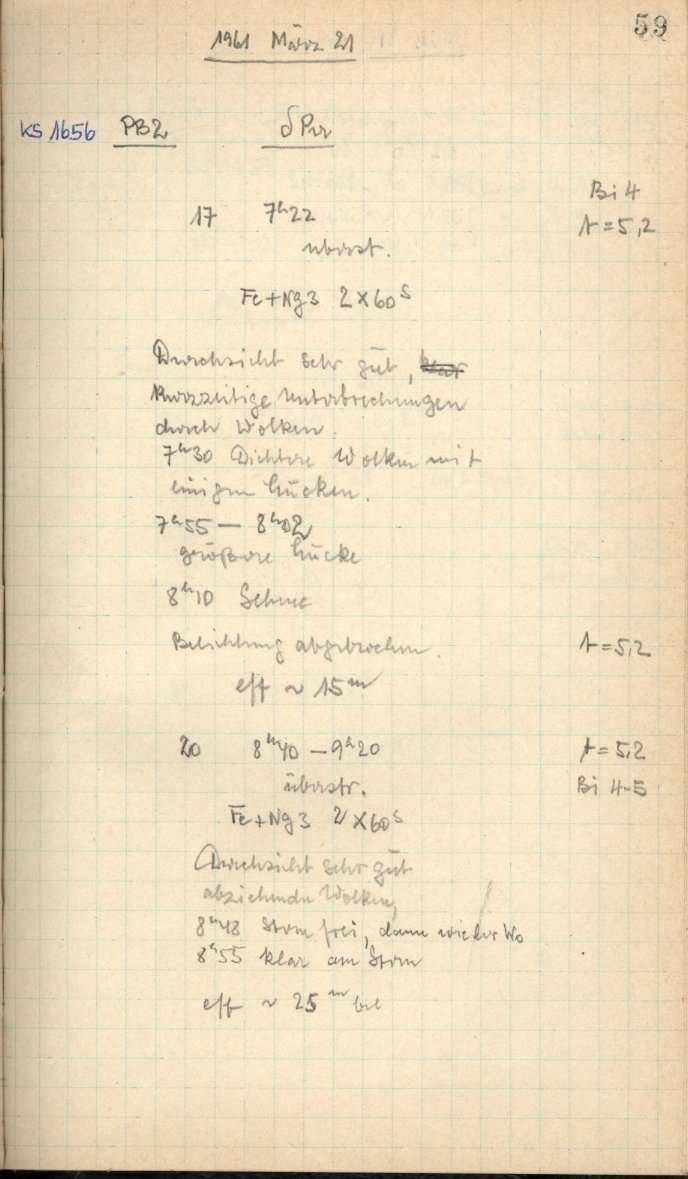 59
1961 März 21
KS 1656 PB2 δ Per
Bi 4
17 7h22 t = 5,2
überst.
Fe+Ng3 2×60s
Durchsicht sehr gut,
kurzzeitige Unterbrechungen
durch Wolken
7h30 Dichtere Wolken mit
einigen Lücken.
7h55 – 8h02
größere Lücke
8h10 Schnee
Belichtung abgebrochen. t = 5,2
eff ~ 15m
20 8h40 – 9h20 t = 5,2
überstr. Bi 4-5
Fe+Ng3 2×60s
Durchsicht sehr gut
abziehende Wolken,
8h48 Stern frei, dann wieder Wo
8h55 klar am Stern
eff ~ 25m bel